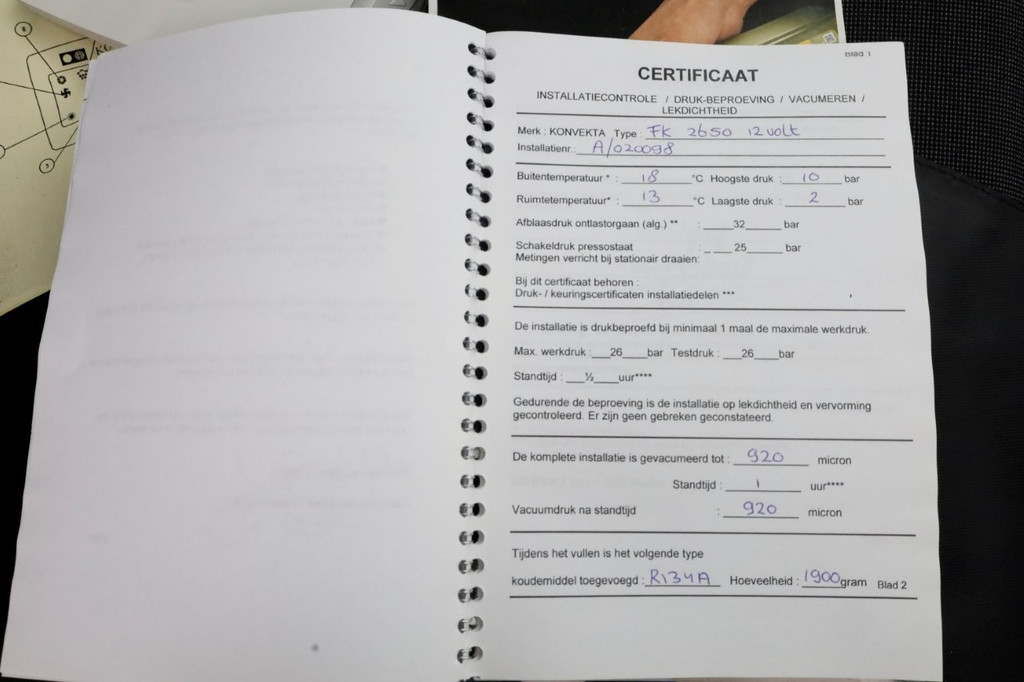 Blad 1
CERTIFICAAT
INSTALLATIECONTROLE / DRUK-BEPROEVING / VACUMEREN /
LEKDICHTHEID
Merk : KONVEKTA Type : FK 2650 12 volt
Installatienr.: A/020098
Buitentemperatuur * : 18 °C Hoogste druk : 10 bar
Ruimtetemperatuur* : 13 °C Laagste druk : 2 bar
Afblaasdruk ontlastorgaan (alg.) ** : ____32_____ bar
Schakeldruk pressostaat : _ __25_____ bar
Metingen verricht bij stationair draaien:
Bij dit certificaat behoren :
Druk- / keuringscertificaten installatiedelen ***
De installatie is drukbeproefd bij minimaal 1 maal de maximale werkdruk.
Max. werkdruk :___26____bar Testdruk : ___26____bar
Standtijd : ___½____uur****
Gedurende de beproeving is de installatie op lekdichtheid en vervorming
gecontroleerd. Er zijn geen gebreken geconstateerd.
De komplete installatie is gevacumeerd tot : 920 micron
Standtijd : 1 uur****
Vacuumdruk na standtijd : 920 micron
Tijdens het vullen is het volgende type
koudemiddel toegevoegd : R134A Hoeveelheid : 1900 gram Blad 2